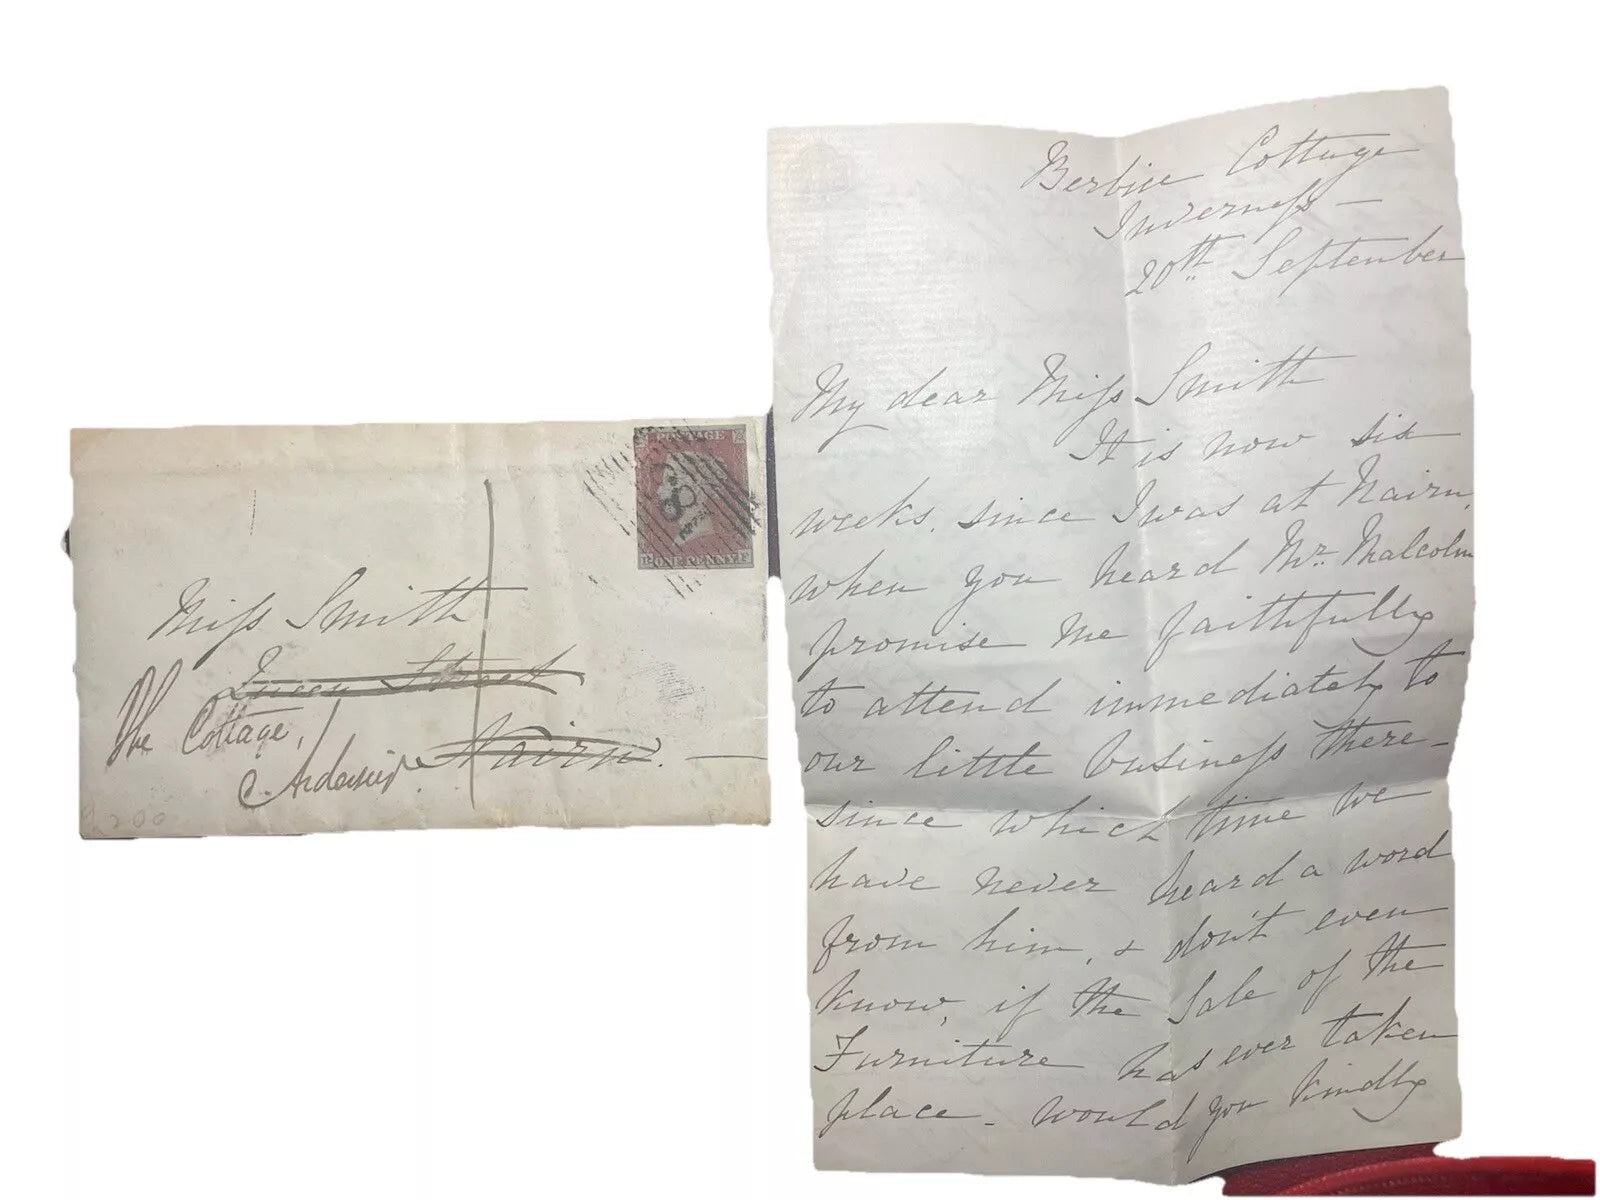 POSTAGE
ONE PENNY
Miss Smith
Queen Street
The Cottage,
Nairn.
Berbice Cottage
Inverness —
20th September
My dear Miss Smith
It is now six
weeks, since I was at Nairn,
when you heard Mr. Malcolm
promise me faithfully
to attend immediately to
our little business there –
since which time we
have never heard a word
from him, & don't even
know, if the Sale of the
Furniture has ever taken
place – would you kindly